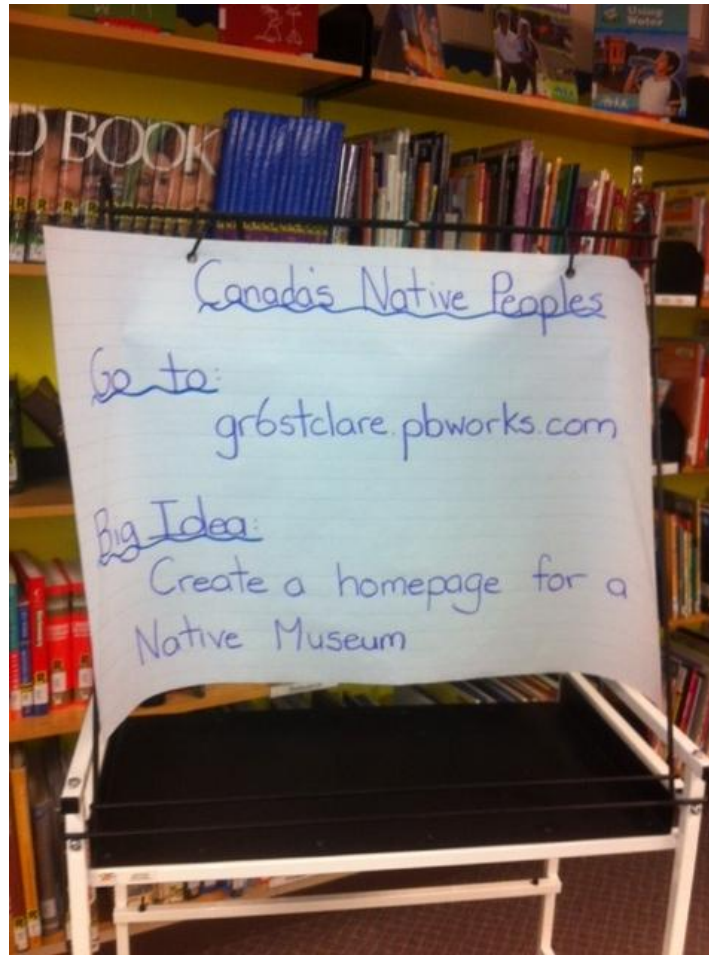 Using
Water
D BOOK
Canada's Native Peoples
Go to:
gr6stclare.pbworks.com
Big Idea:
Create a homepage for a
Native Museum